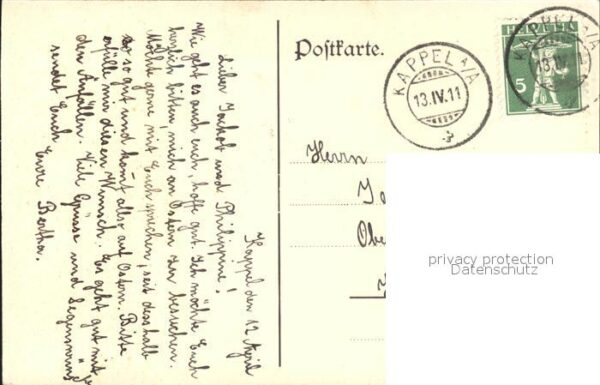 Kappel den 12 April
Lieber Jackob und Philippine!
Wie geht es auch euch, hoffe gut. Ich möchte Euch
herzlich bitten, mich an Ostern zu besuchen.
Möchte gerne mit Euch sprechen, seit desshalb
so gut und komt also auf Ostern. Bitte
erfülle mir diesen Wunsch. Es geht gut mit
den Anfällen. Viele Grüsse und Segenswünsche
sendet Euch Eure Bertha.
Postkarte.
KAPPEL a/A
13.IV.11
HELVETIA
5
KAPPEL a/A
13.IV.11
Herrn
Ja
Obe
privacy protection
Datenschutz